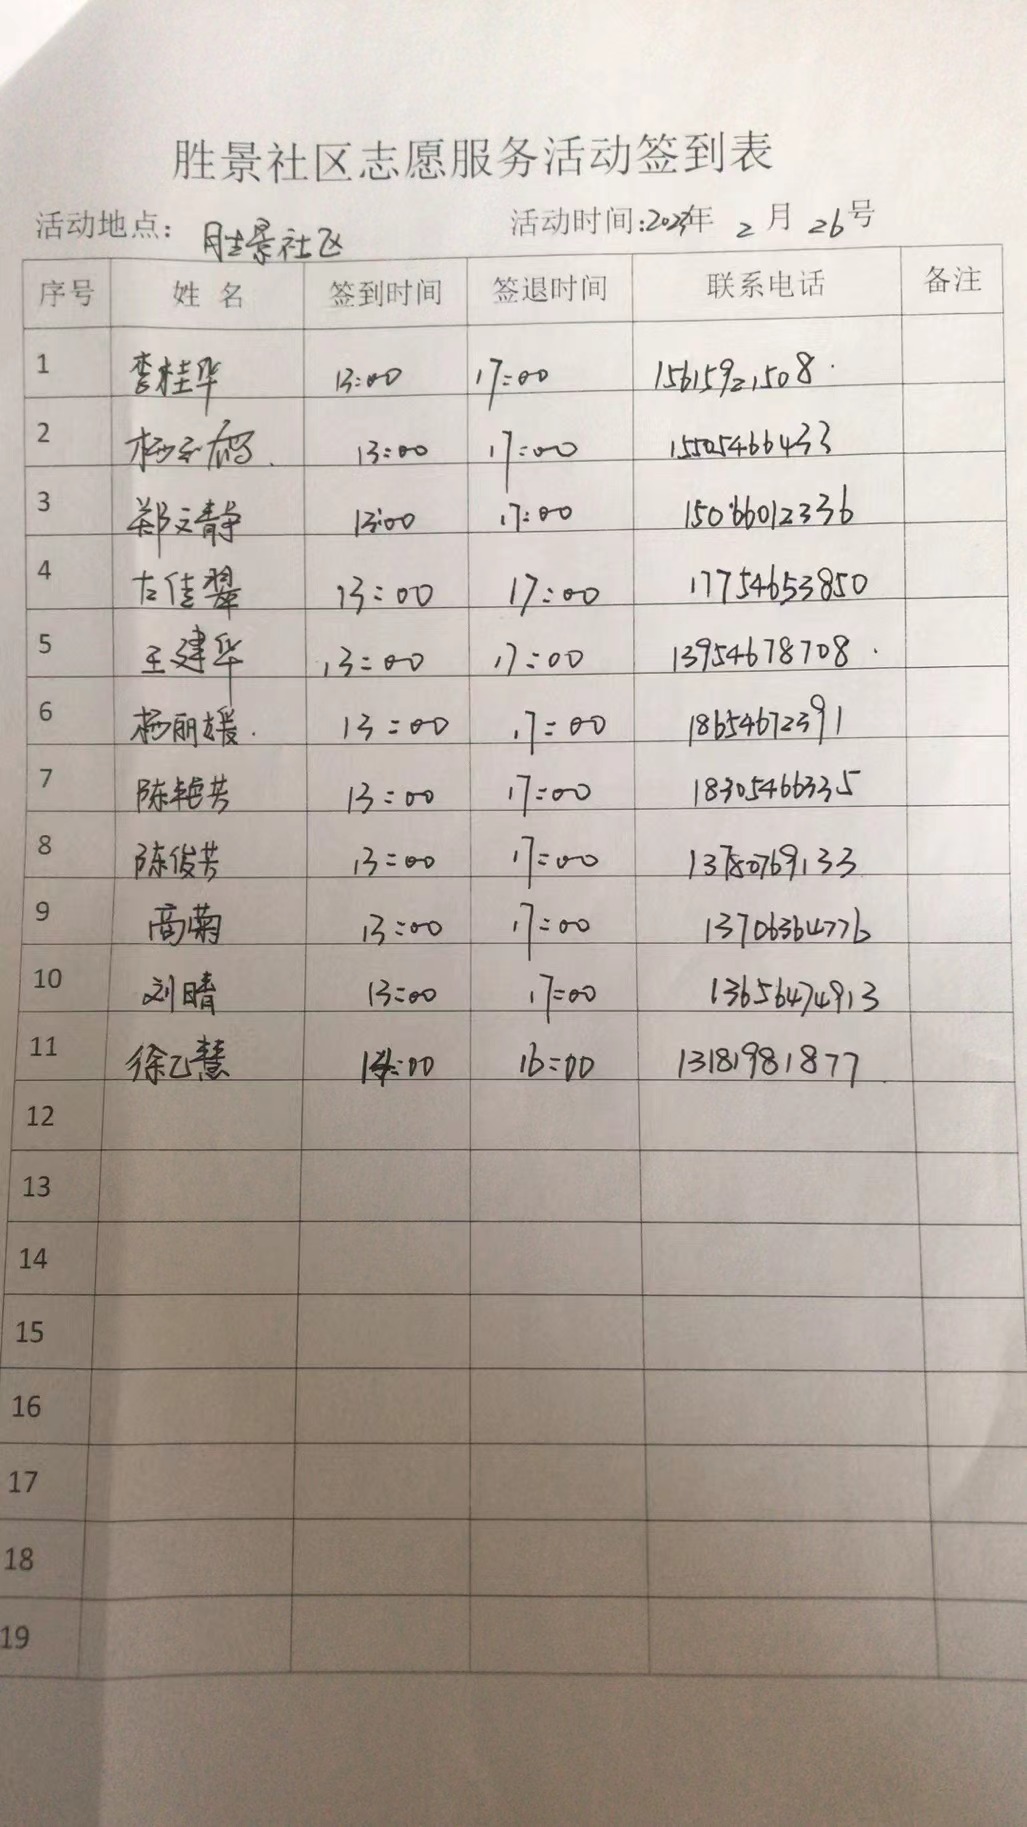 胜景社区志愿服务活动签到表
活动地点：胜景社区 活动时间:2023年 2 月 26 号
序号 姓 名 签到时间 签退时间 联系电话 备注
1 李桂华 13:00 17:00 15615921508
2 杨 13:00 17:00 15505466433
3 郑文静 13:00 17:00 15066012336
4 左佳翠 13:00 17:00 17754653850
5 王建华 13:00 17:00 13954678708
6 杨丽媛 13:00 17:00 18654672391
7 陈艳芳 13:00 17:00 18305466335
8 陈俊芳 13:00 17:00 13780769133
9 高菊 13:00 17:00 13706364776
10 刘晴 13:00 17:00 13656474913
11 徐乙慧 14:00 16:00 13181981877
12
13
14
15
16
17
18
19